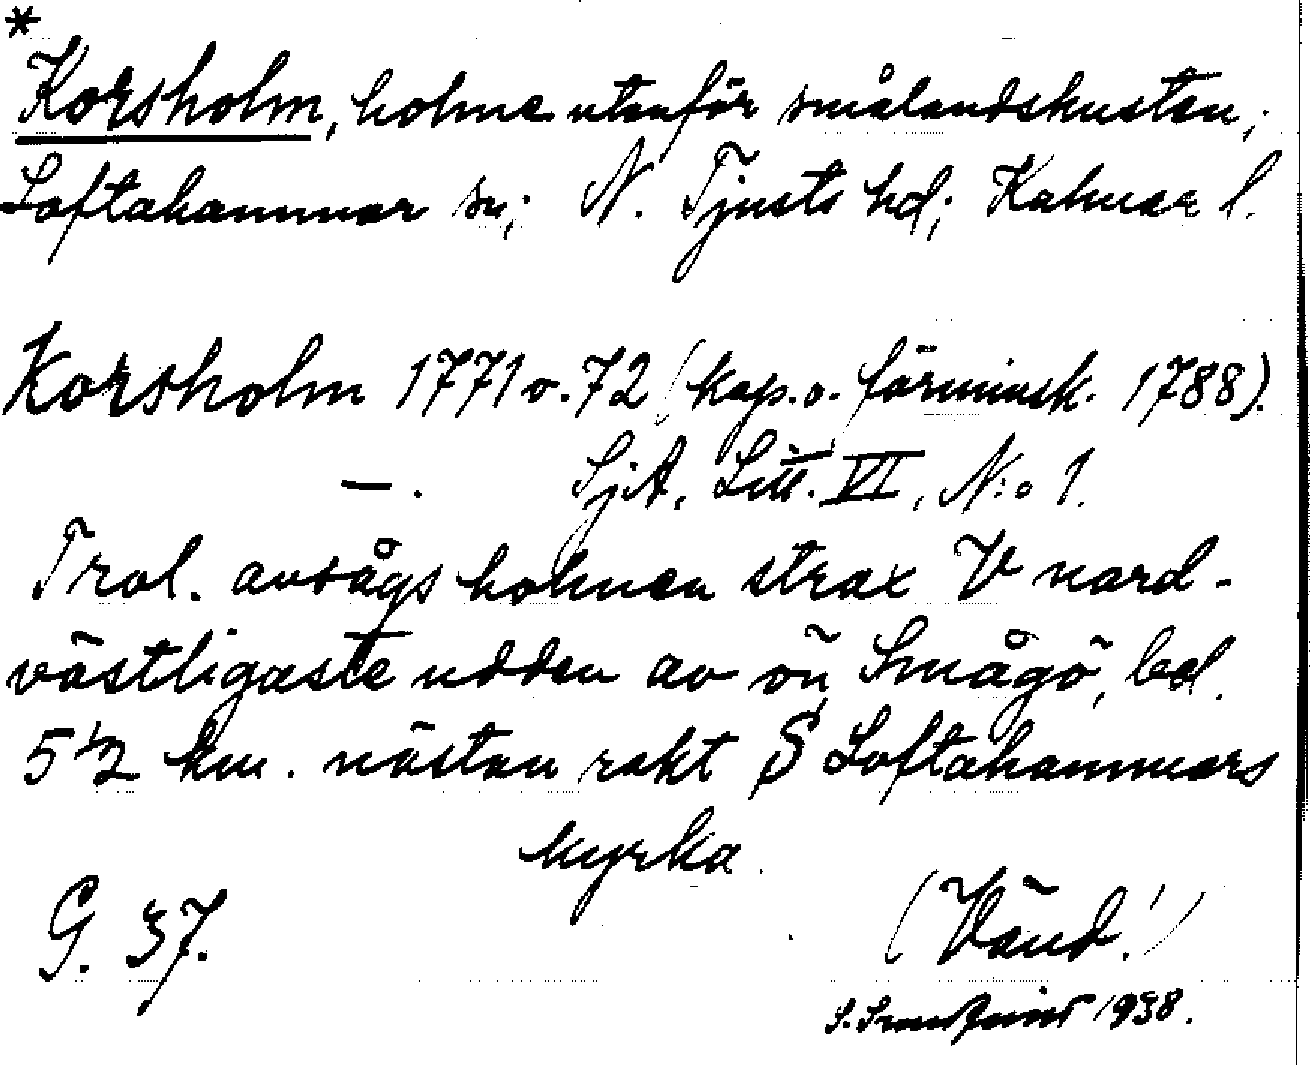 *
Korsholm, holme utanför smålandskusten;
Loftahammar sn; N. Tjusts hd; Kalmar l.
Korsholm 1771 o. 72 (kop. o. förminsk. 1788).
—. SjA, Litt. VI, N:o 1.
Trol. avsågs holmen strax V nord-
västligaste udden av ön Smågö, bel.
5 1/2 km. nästan rakt S Loftahammars
kyrka.
G. 37. (Vänd!)
S. 1938.